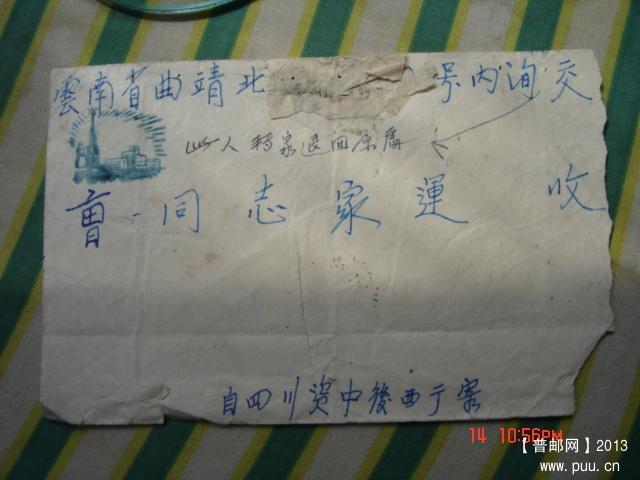 雲南省曲靖北 号内洵交
此人移家退回原寄
曹同志家運 收
自四川資中後西街寄
14 10:56PM
【普邮网】2013
www.puu.cn